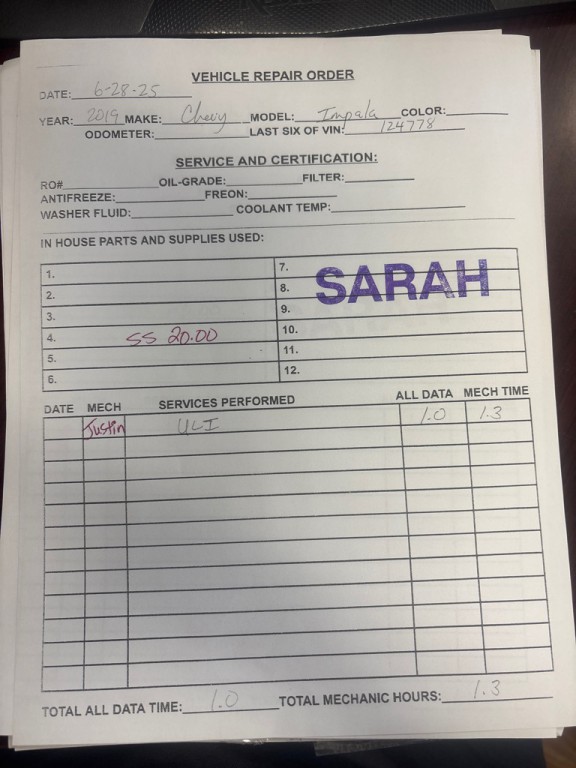 VEHICLE REPAIR ORDER
DATE: 6-28-25
YEAR: 2019 MAKE: Chevy MODEL: Impala COLOR:
ODOMETER: LAST SIX OF VIN: 124778
SERVICE AND CERTIFICATION:
RO# OIL-GRADE: FILTER:
ANTIFREEZE: FREON:
WASHER FLUID: COOLANT TEMP:
IN HOUSE PARTS AND SUPPLIES USED:
1. 7.
2. 8. SARAH
3. 9.
4. SS 20.00 10.
5. 11.
6. 12.
DATE MECH SERVICES PERFORMED ALL DATA MECH TIME
Justin ULI 1.0 1.3
TOTAL ALL DATA TIME: 1.0 TOTAL MECHANIC HOURS: 1.3